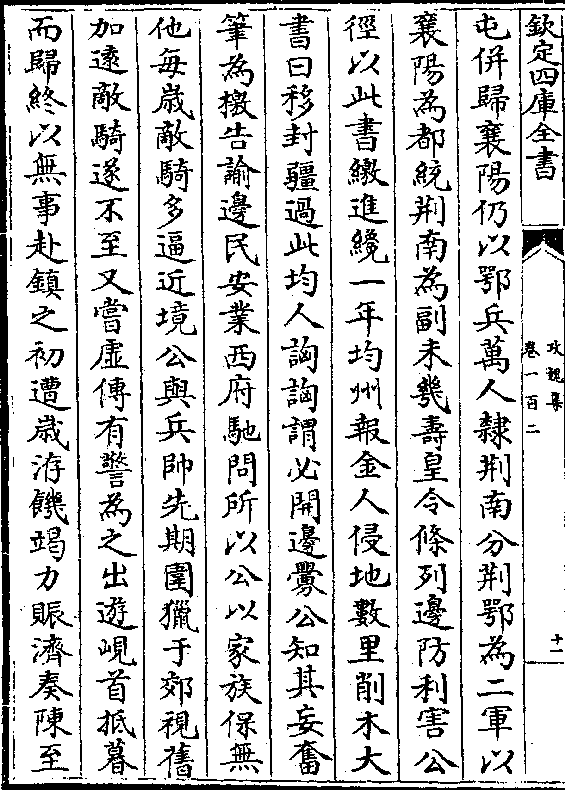 欽定四庫全書
攻媿集
卷一百二
十一
屯併歸襄陽仍以鄂兵萬人隸荆南分荆鄂為二軍以
襄陽為都統荆南為副未幾壽皇令條列邊防利害公
徑以此書繳進纔一年均州報金人侵地數里削木大
書曰移封疆過此均人詾詾謂必開邊釁公知其妄奮
筆為檄告諭邊民安業西府馳問所以公以家族保無
他每歲敵騎多逼近境公與兵帥先期圍獵于郊視舊
加遠敵騎遂不至又嘗虛傳有警為之出遊峴首抵暮
而歸終以無事赴鎮之初遭歲洊饑竭力賑濟奏陳至